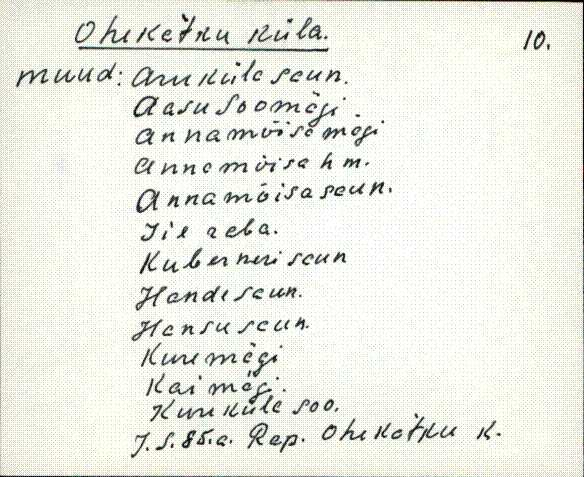 Ohekatku küla.
10.
muud: Aruküla saun.
Aasu Soomägi.
Annamõisa mägi
Annamõisa h m.
Annamõisa saun.
Kuberneri saun
Hande saun.
Hansu saun.
Kure mägi
Kai mägi.
Kureküla soo.
J.S.85.a. Rap. Ohekatku k.